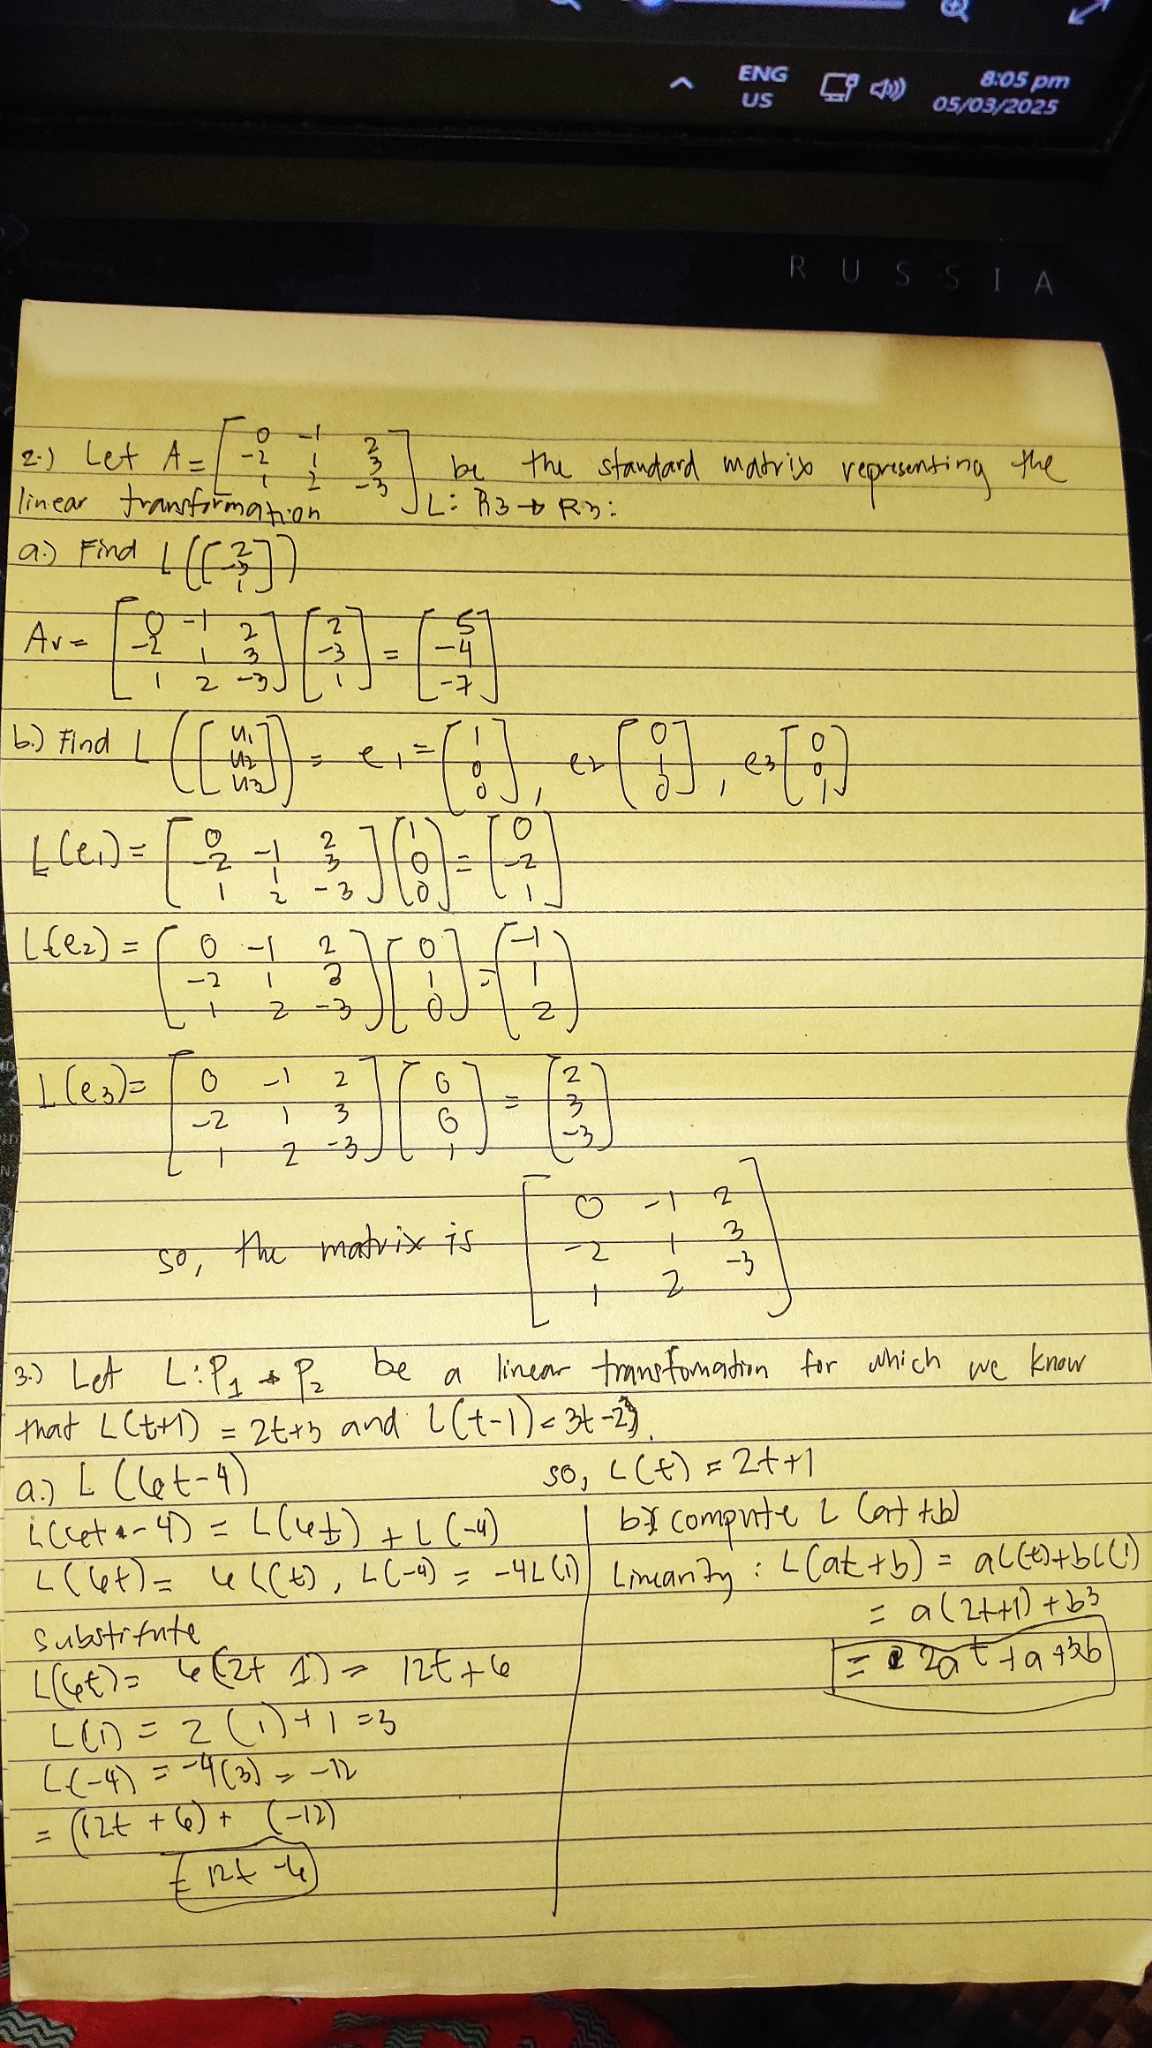 ENG
US
8:05 pm
05/03/2025
RUSSIA
2.) Let A = [ 0 -1 2
-2 1 3
1 2 -3 ] be the standard matrix representing the
linear transformation L: R3 → R3:
a.) Find L([ 2
-3
1 ])
Av = [ 0 -1 2
-2 1 3
1 2 -3 ] [ 2
-3
1 ] = [ 5
-4
-7 ]
b.) Find L([ u1
u2
u3 ]) = e1 = [ 1
0
0 ], e2 [ 0
1
0 ], e3 [ 0
0
1 ]
L(e1) = [ 0 -1 2
-2 1 3
1 2 -3 ] [ 1
0
0 ] = [ 0
-2
1 ]
L(e2) = [ 0 -1 2
-2 1 3
1 2 -3 ] [ 0
1
0 ] = [ -1
1
2 ]
L(e3) = [ 0 -1 2
-2 1 3
1 2 -3 ] [ 0
0
1 ] = [ 2
3
-3 ]
so, the matrix is [ 0 -1 2
-2 1 3
1 2 -3 ]
3.) Let L: P1 → P2 be a linear transfomation for which we know
that L(t+1) = 2t+3 and L(t-1) = 3t-2
a.) L(6t-4)
so, L(t) = 2t+1
L(6t-4) = L(6t) + L(-4)
L(6t) = 6L(t), L(-4) = -4L(1)
substitute
L(6t) = 6(2t 1) = 12t+6
L(1) = 2(1)+1 = 3
L(-4) = -4(3) = -12
= (12t+6) + (-12)
= 12t-6
b) compute L(at+b)
Linearity: L(at+b) = aL(t)+bL(1)
= a(2t+1)+b3
= 2at+a+3b